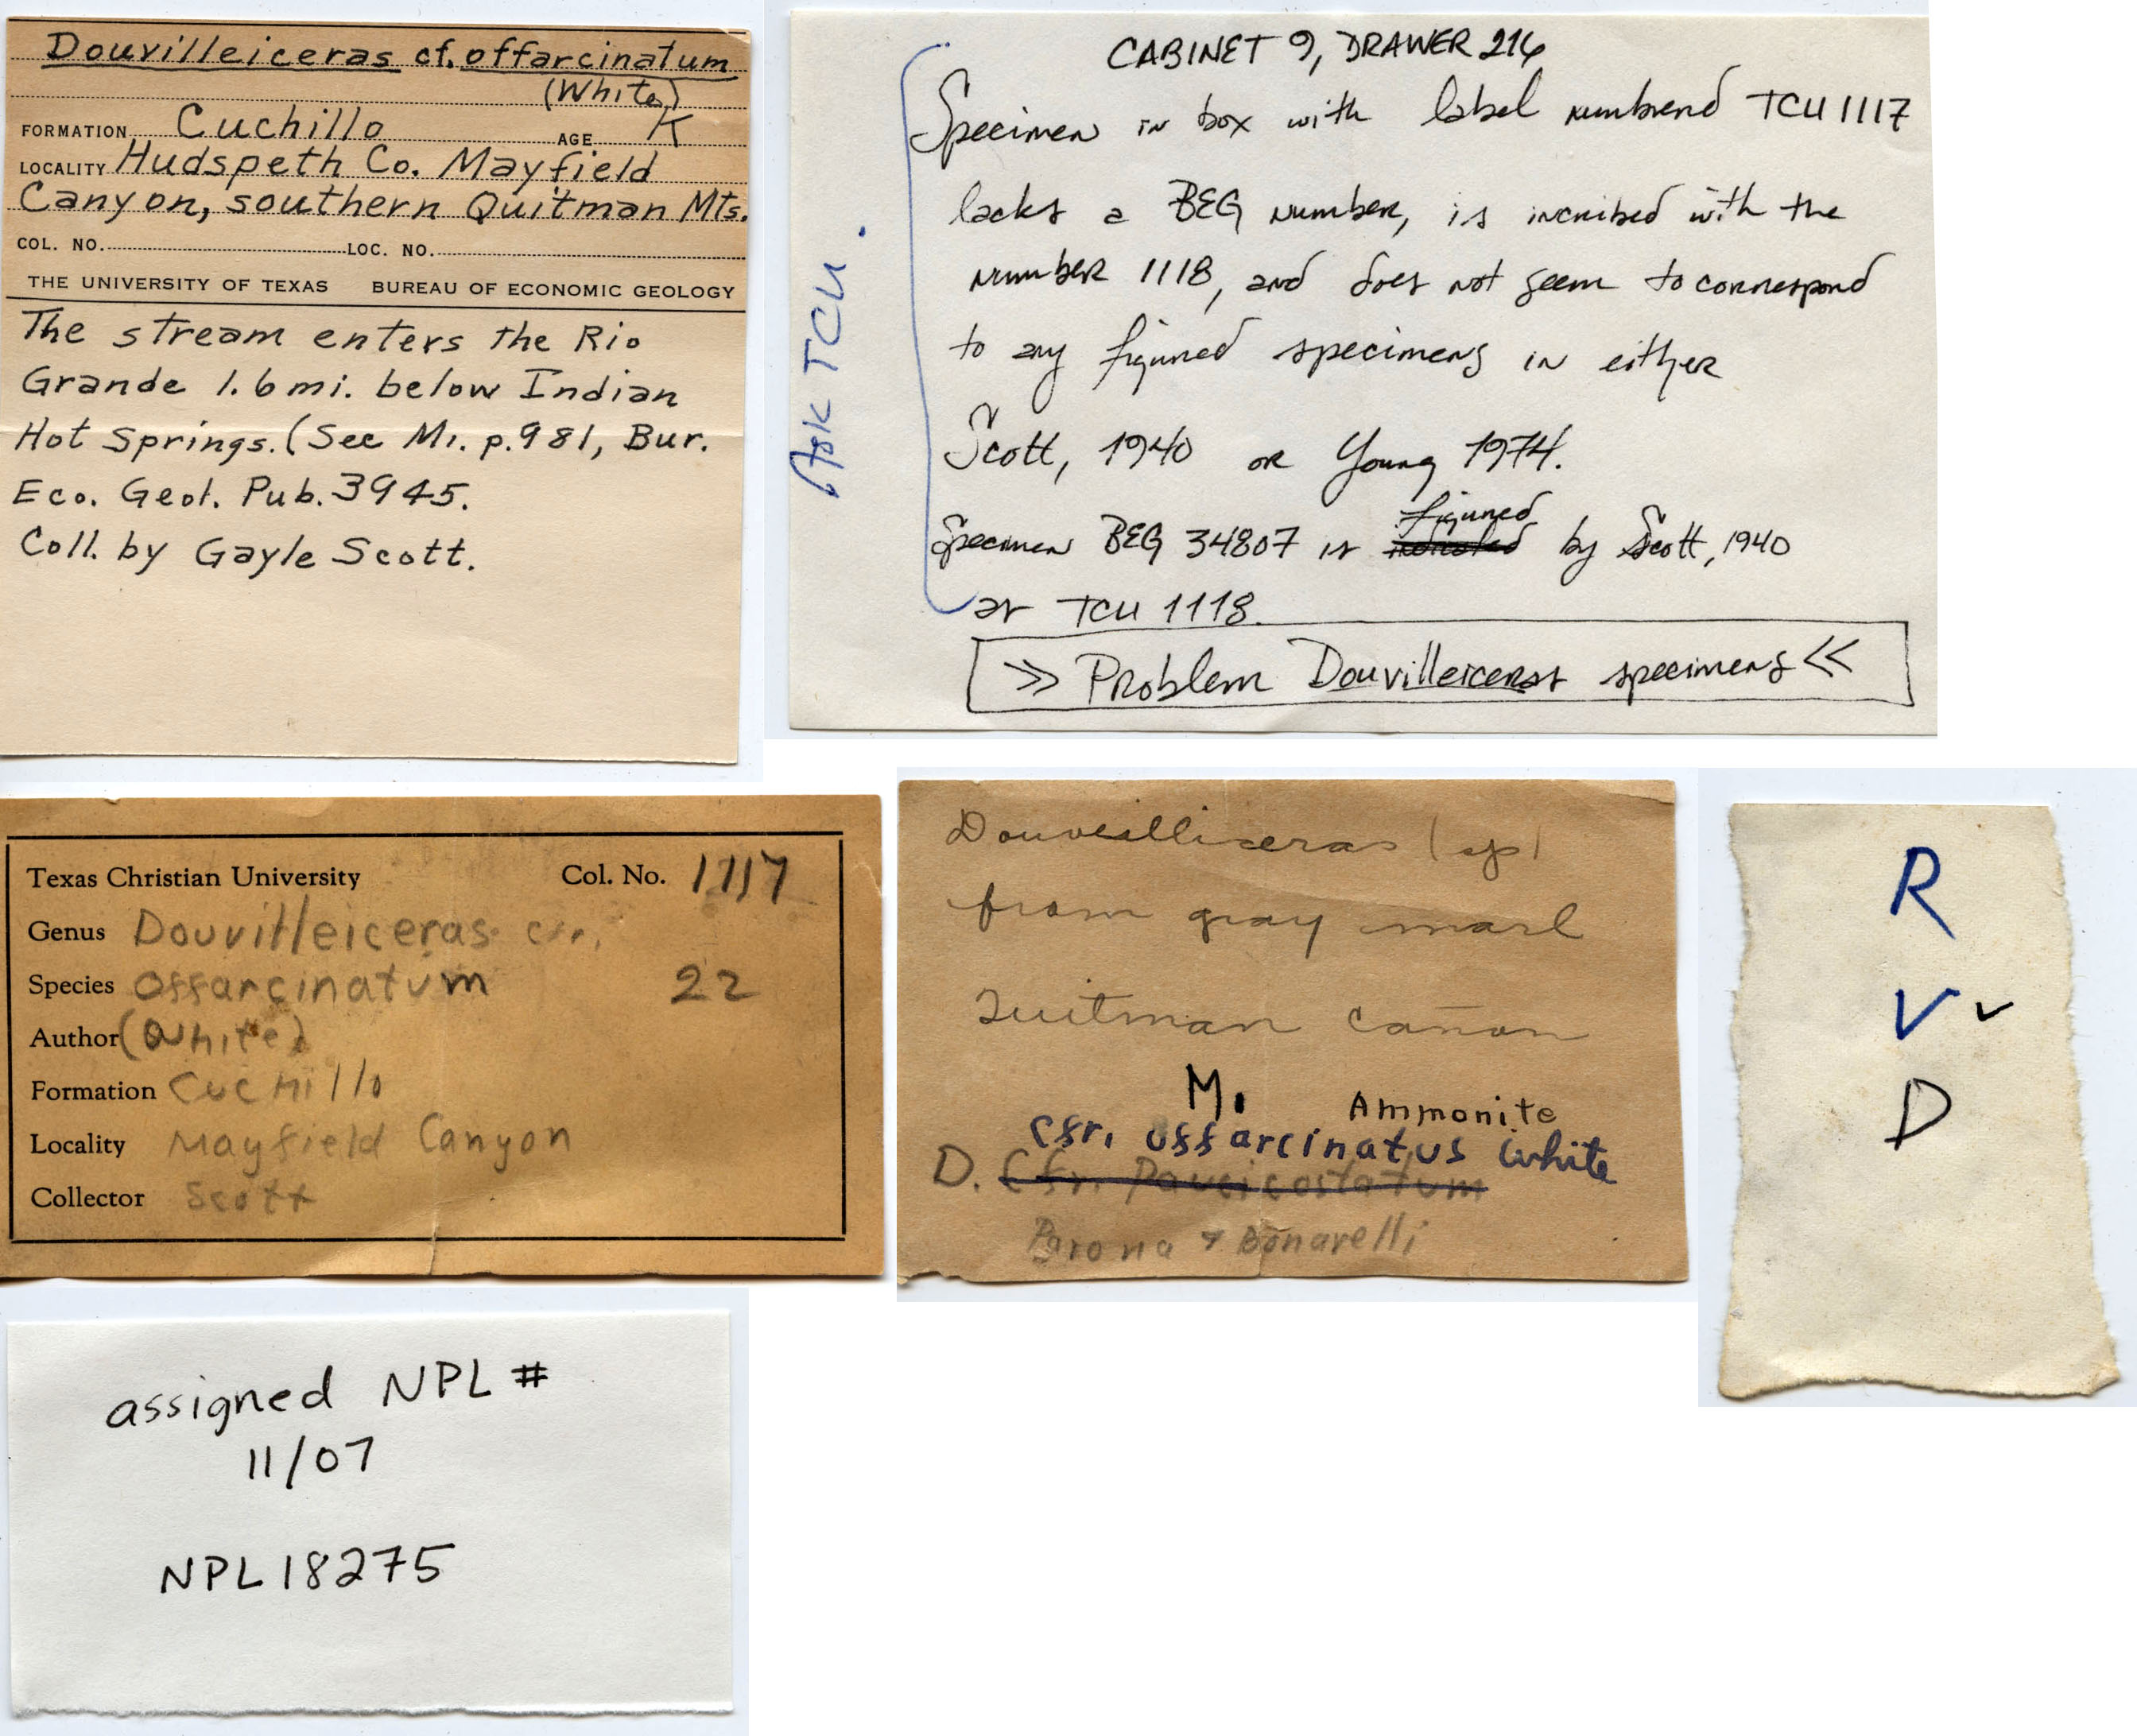 Douvilleiceras cf. offarcinatum
(White)
FORMATION Cuchillo AGE K
LOCALITY Hudspeth Co. Mayfield
Canyon, southern Quitman Mts.
COL. NO. LOC. NO.
THE UNIVERSITY OF TEXAS BUREAU OF ECONOMIC GEOLOGY
The stream enters the Rio
Grande 1.6 mi. below Indian
Hot Springs. (See M1. p.981, Bur.
Eco. Geol. Pub. 3945.
Coll. by Gayle Scott.
CABINET 9, DRAWER 216
Specimen in box with label numbered TCU 1117
lacks a BEG number, is incribed with the
number 1118, and does not seem to correspond
to any figured specimens in either
Scott, 1940 or Young 1974.
Specimen BEG 34807 is figured by Scott, 1940
as TCU 1118.
>> Problem Douvilleiceras specimens <<
Ask TCU.
Texas Christian University Col. No. 1117
Genus Douvilleiceras cfr.
Species offarcinatum 22
Author (White)
Formation Cuchillo
Locality Mayfield Canyon
Collector Scott
Douveilliceras (sp)
from gray marl
Quitman cañon
M. Ammonite
cfr. offarcinatus White
D. Cfr. Paucicostatum
Parona & Bonarelli
R
V v
D
assigned NPL #
11/07
NPL18275